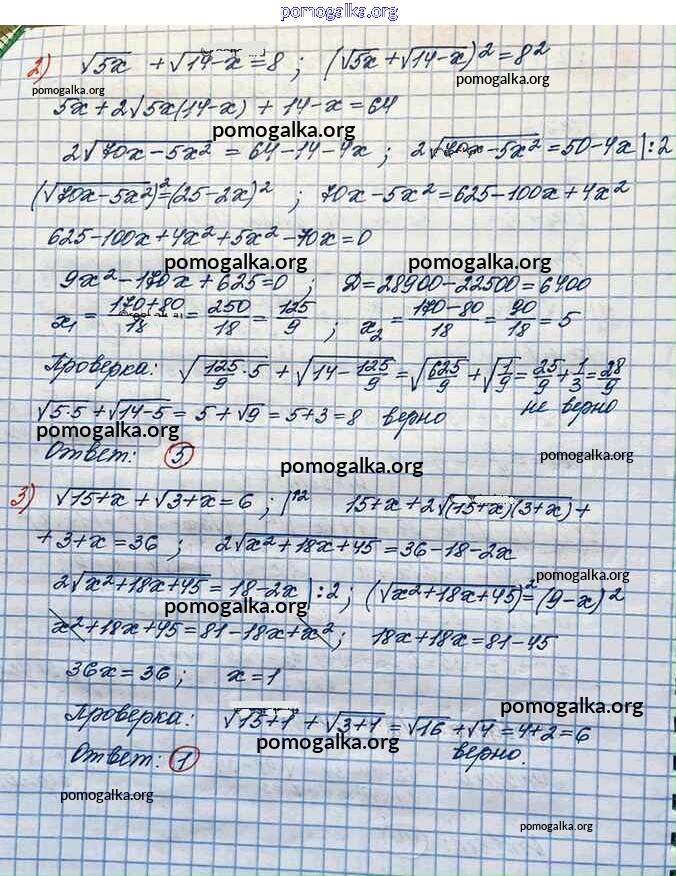 pomogalka.org
2) √5x + √14-x = 8 ; (√5x + √14-x)² = 8²
pomogalka.org pomogalka.org
5x + 2√5x(14-x) + 14-x = 64
pomogalka.org
2√70x-5x² = 64-14-4x ; 2√70x-5x² = 50-4x |:2
(√70x-5x²)² = (25-2x)² ; 70x-5x² = 625-100x+4x²
625-100x+4x²+5x²-70x=0
pomogalka.org pomogalka.org
9x²-170x+625=0 ; D=28900-22500=6400
x₁ = (170+80)/18 = 250/18 = 125/9 ; x₂ = (170-80)/18 = 90/18 = 5
Проверка: √125/9·5 + √14-125/9 = √625/9 + √1/9 = 25/9 + 1/3 = 28/9
не верно
√5·5 + √14-5 = 5+√9 = 5+3 = 8 верно
pomogalka.org
Ответ: 5
pomogalka.org
3) √15+x + √3+x = 6 ; |^2 15+x+2√(15+x)(3+x) +
+3+x=36 ; 2√x²+18x+45 = 36-18-2x
pomogalka.org
2√x²+18x+45 = 18-2x |:2 ; (√x²+18x+45)² = (9-x)²
pomogalka.org
x²+18x+45=81-18x+x² ; 18x+18x=81-45
36x=36 ; x=1
pomogalka.org
Проверка: √15+1 + √3+1 = √16 + √4 = 4+2 = 6
pomogalka.org
верно.
Ответ: 1
pomogalka.org
pomogalka.org